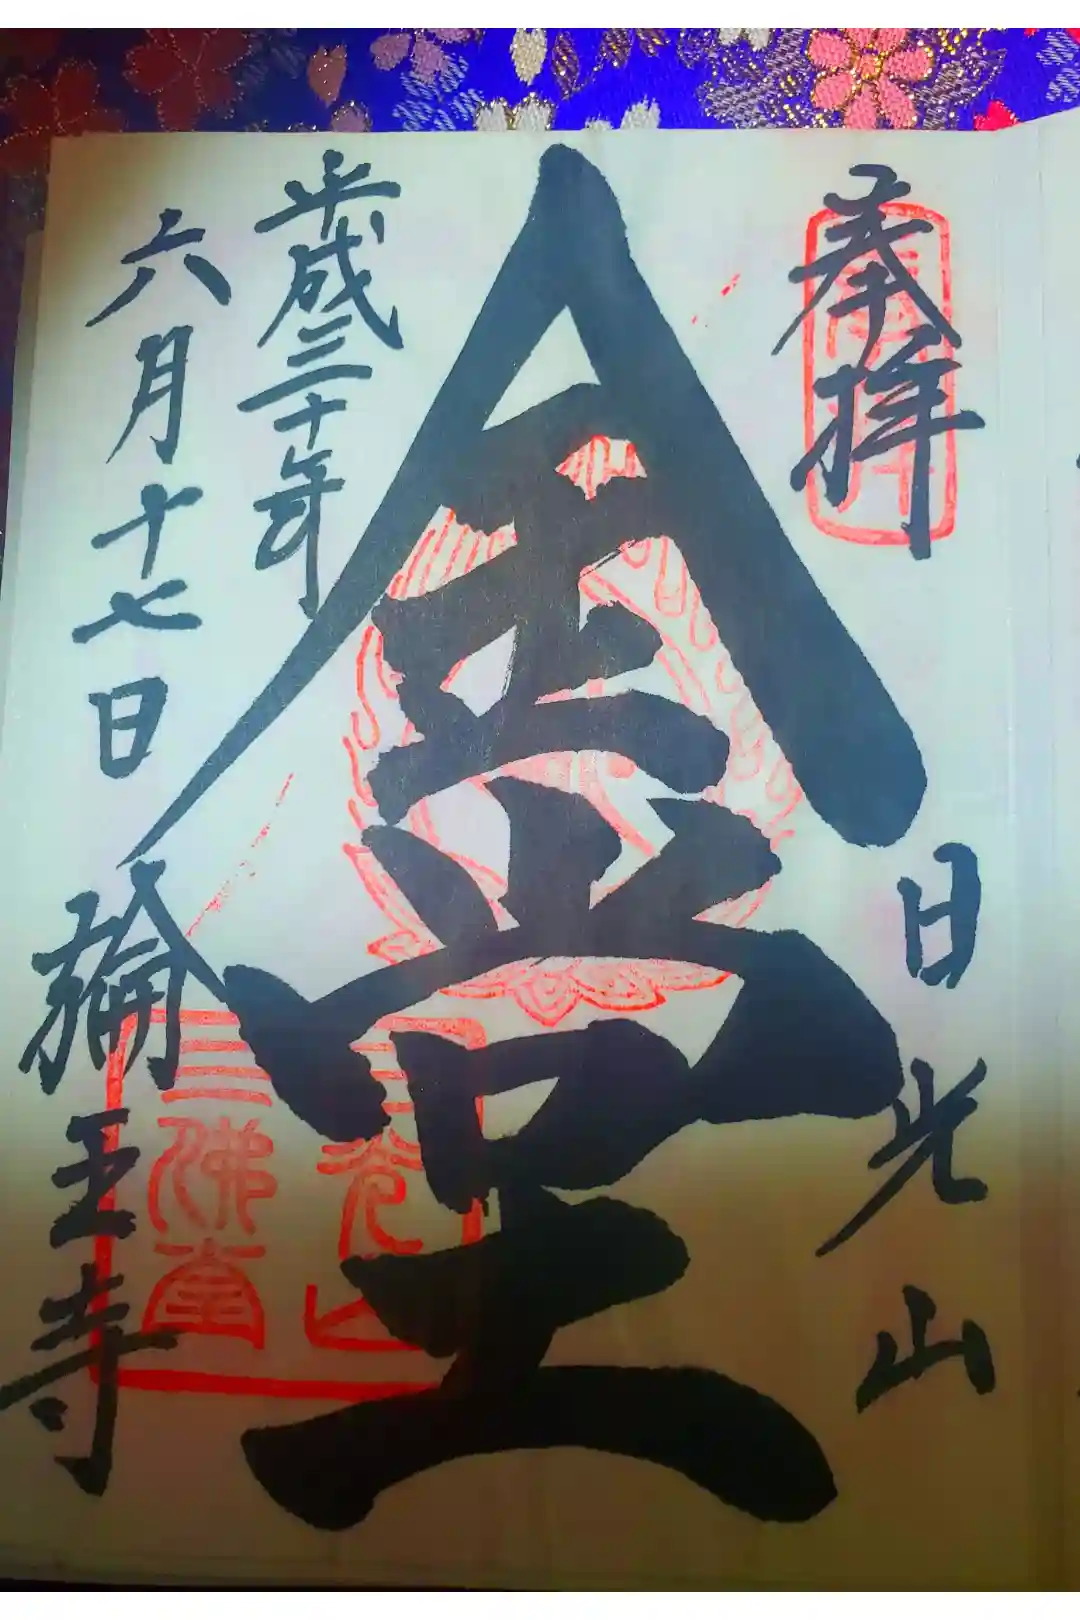 奉拝
日光山
金堂
平成三十年
六月十七日
輪王寺
三佛堂